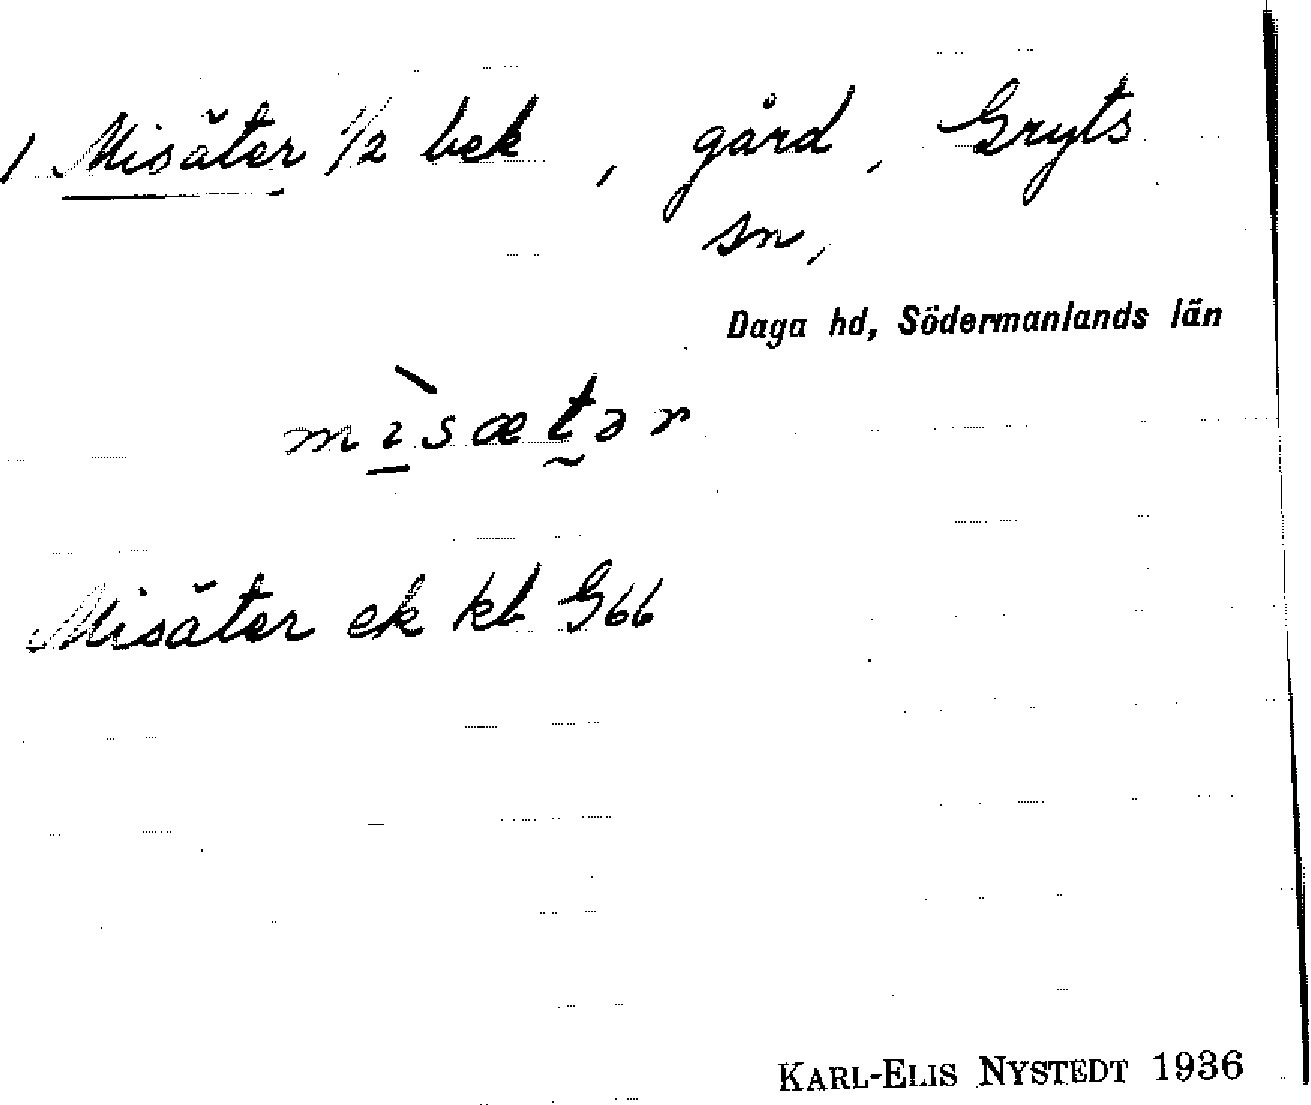 1 Misäter 1/2 bek, gård, Gryts
sn,
Daga hd, Södermanlands län
mìsætər
Misäter ek kb G66
KARL-ELIS NYSTEDT 1936